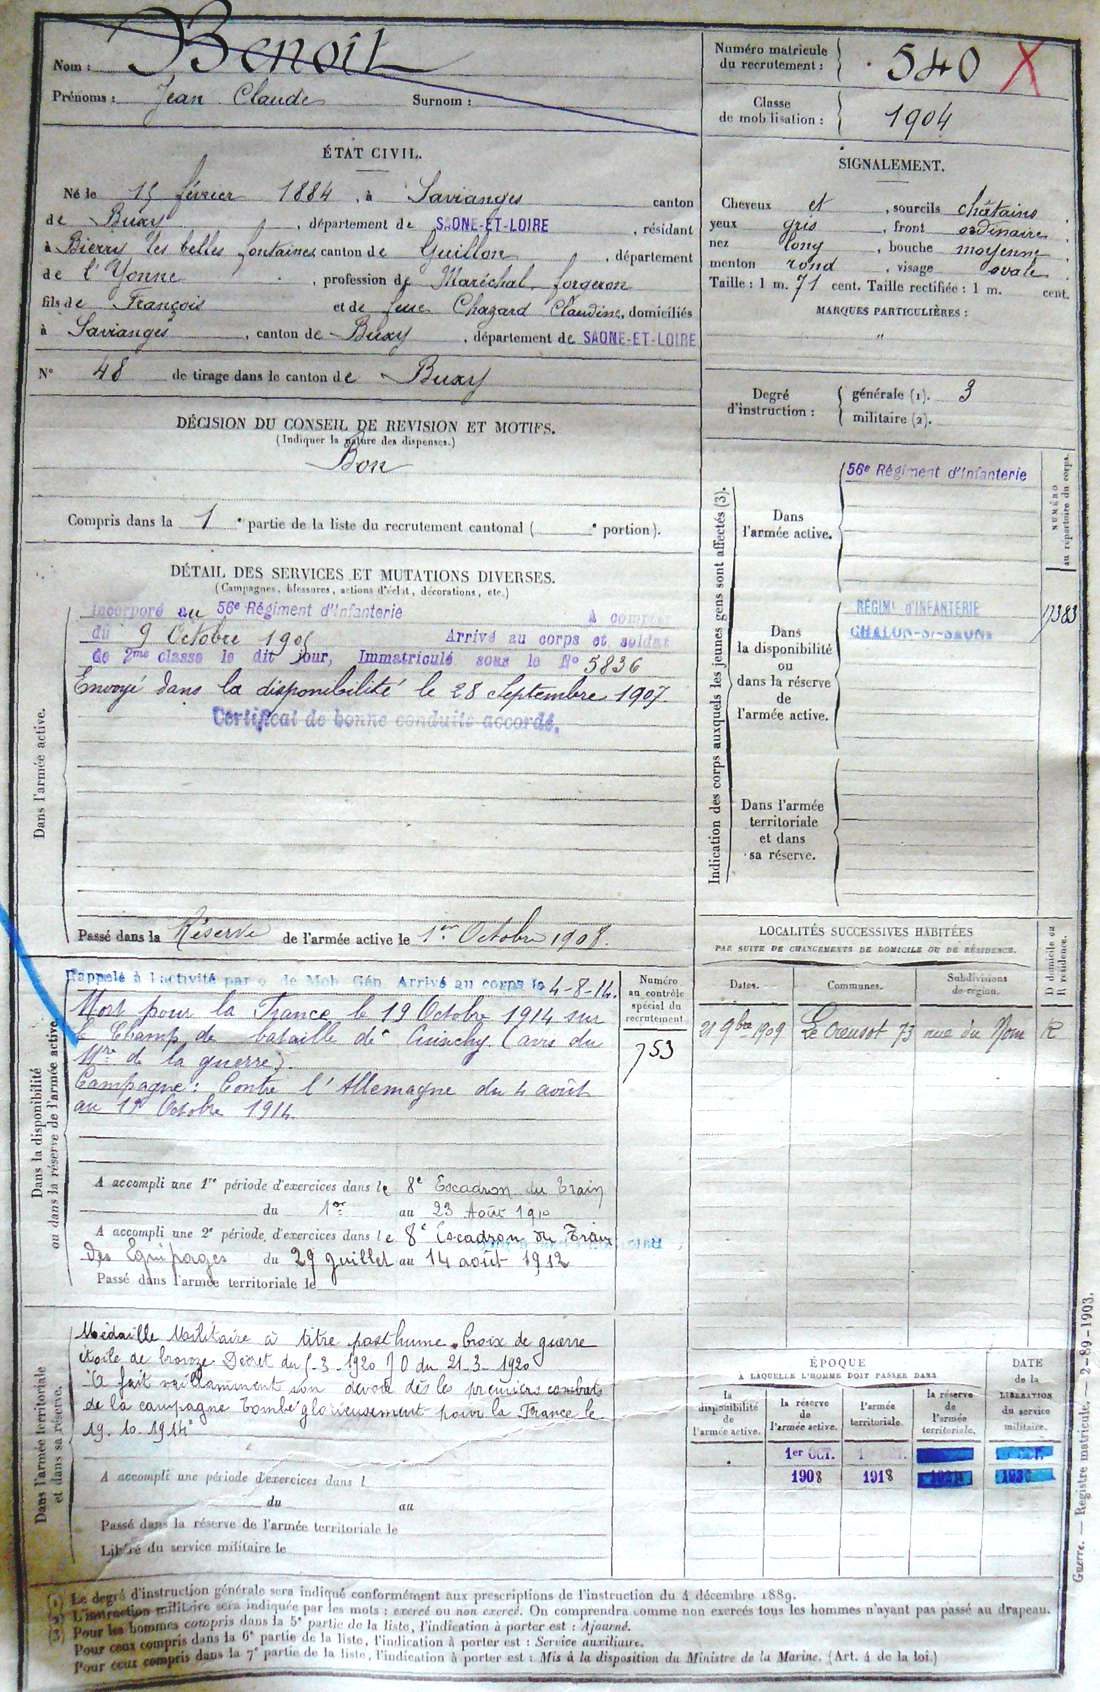 Nom : Benoit
Prénoms : Jean Claude Surnom :
Numéro matricule
du recrutement : 540 X
Classe
de mobilisation : 1904
ÉTAT CIVIL.
Né le 15 février 1884, à Savianges canton
de Buxy, département de SAONE-ET-LOIRE, résidant
à Bierry les belles fontaines canton de Guillon, département
de l'Yonne, profession de Maréchal forgeron
fils de François et de feue Chazard Claudine, domiciliés
à Savianges, canton de Buxy, département de SAONE-ET-LOIRE
N° 48 de tirage dans le canton de Buxy
SIGNALEMENT.
Cheveux et, sourcils châtains,
yeux gris, front ordinaire,
nez long, bouche moyenne,
menton rond, visage ovale.
Taille : 1 m. 71 cent. Taille rectifiée : 1 m. cent.
MARQUES PARTICULIÈRES :
"
Degré
d'instruction :
générale (1). 3
militaire (2).
DÉCISION DU CONSEIL DE REVISION ET MOTIFS.
(Indiquer la nature des dispenses.)
Bon
Compris dans la 1e partie de la liste du recrutement cantonal ( e portion).
DÉTAIL DES SERVICES ET MUTATIONS DIVERSES.
(Campagnes, blessures, actions d'éclat, décorations, etc.)
Dans l'armée active.
Incorporé au 56e Régiment d'Infanterie à compter
du 9 Octobre 1905 Arrivé au corps et soldat
de 2me classe le dit jour, Immatriculé sous le No 5836
Envoyé dans la disponibilité le 28 Septembre 1907.
Certificat de bonne conduite accordé.
Passé dans la Réserve de l'armée active le 1er Octobre 1908.
Indication des corps auxquels les jeunes gens sont affectés (3).
Dans
l'armée active.
56e Régiment d'Infanterie
NUMÉRO
au répertoire du corps.
Dans
la disponibilité
ou
dans la réserve
de
l'armée active.
RÉGIMt d'INFANTERIE
CHALON-s/-SAONE
Dans l'armée
territoriale
et dans
sa réserve.
Dans la disponibilité
ou dans la réserve de l'armée active.
Rappelé à l'activité par o de Mob Gén Arrivé au corps le 4-8-14.
Mort pour la France le 19 Octobre 1914 sur
le Champ de bataille de Cuinchy (avis du
Mre de la guerre).
Campagne : Contre l'Allemagne du 4 août
au 19 Octobre 1914.
Numéro
au contrôle
spécial du
recrutement.
753
A accompli une 1re période d'exercices dans le 8e Escadron du Train
du 1er au 23 Août 1910
A accompli une 2e période d'exercices dans le 8e Escadron du Train
des Equipages du 29 juillet au 14 août 1912
Passé dans l'armée territoriale le
LOCALITÉS SUCCESSIVES HABITÉES
PAR SUITE DE CHANGEMENTS DE DOMICILE OU DE RÉSIDENCE.
Dates. Communes. Subdivisions
de région. D domicile ou
R résidence.
21 9bre 1909 Le Creusot 73 rue du R
Dans l'armée territoriale
et dans sa réserve.
Médaille Militaire à titre posthume. Croix de guerre
étoile de bronze Décret du -3-1920 JO du 21-3-1920
"A fait vaillamment son devoir dès les premiers combats
de la campagne Tombé glorieusement pour la France le
19.10.1914"
A accompli une période d'exercices dans l
du au
Passé dans la réserve de l'armée territoriale le
Libéré du service militaire le
ÉPOQUE
A LAQUELLE L'HOMME DOIT PASSER DANS
DATE
de la
LIBÉRATION
du service
militaire.
la
disponibilité
de
l'armée active.
la réserve
de
l'armée active.
l'armée
territoriale.
la réserve
de
l'armée
territoriale.
1er OCT.
1908 1918
(1) Le degré d'instruction générale sera indiqué conformément aux prescriptions de l'instruction du 4 décembre 1889.
(2) L'instruction militaire sera indiquée par les mots : exercé ou non exercé. On comprendra comme non exercés tous les hommes n'ayant pas passé au drapeau.
(3) Pour les hommes compris dans la 5e partie de la liste, l'indication à porter est : Ajourné.
Pour ceux compris dans la 6e partie de la liste, l'indication à porter est : Service auxiliaire.
Pour ceux compris dans la 7e partie de la liste, l'indication à porter est : Mis à la disposition du Ministre de la Marine. (Art. 4 de la loi.)
Guerre. — Registre matricule. — 2-89-1903.